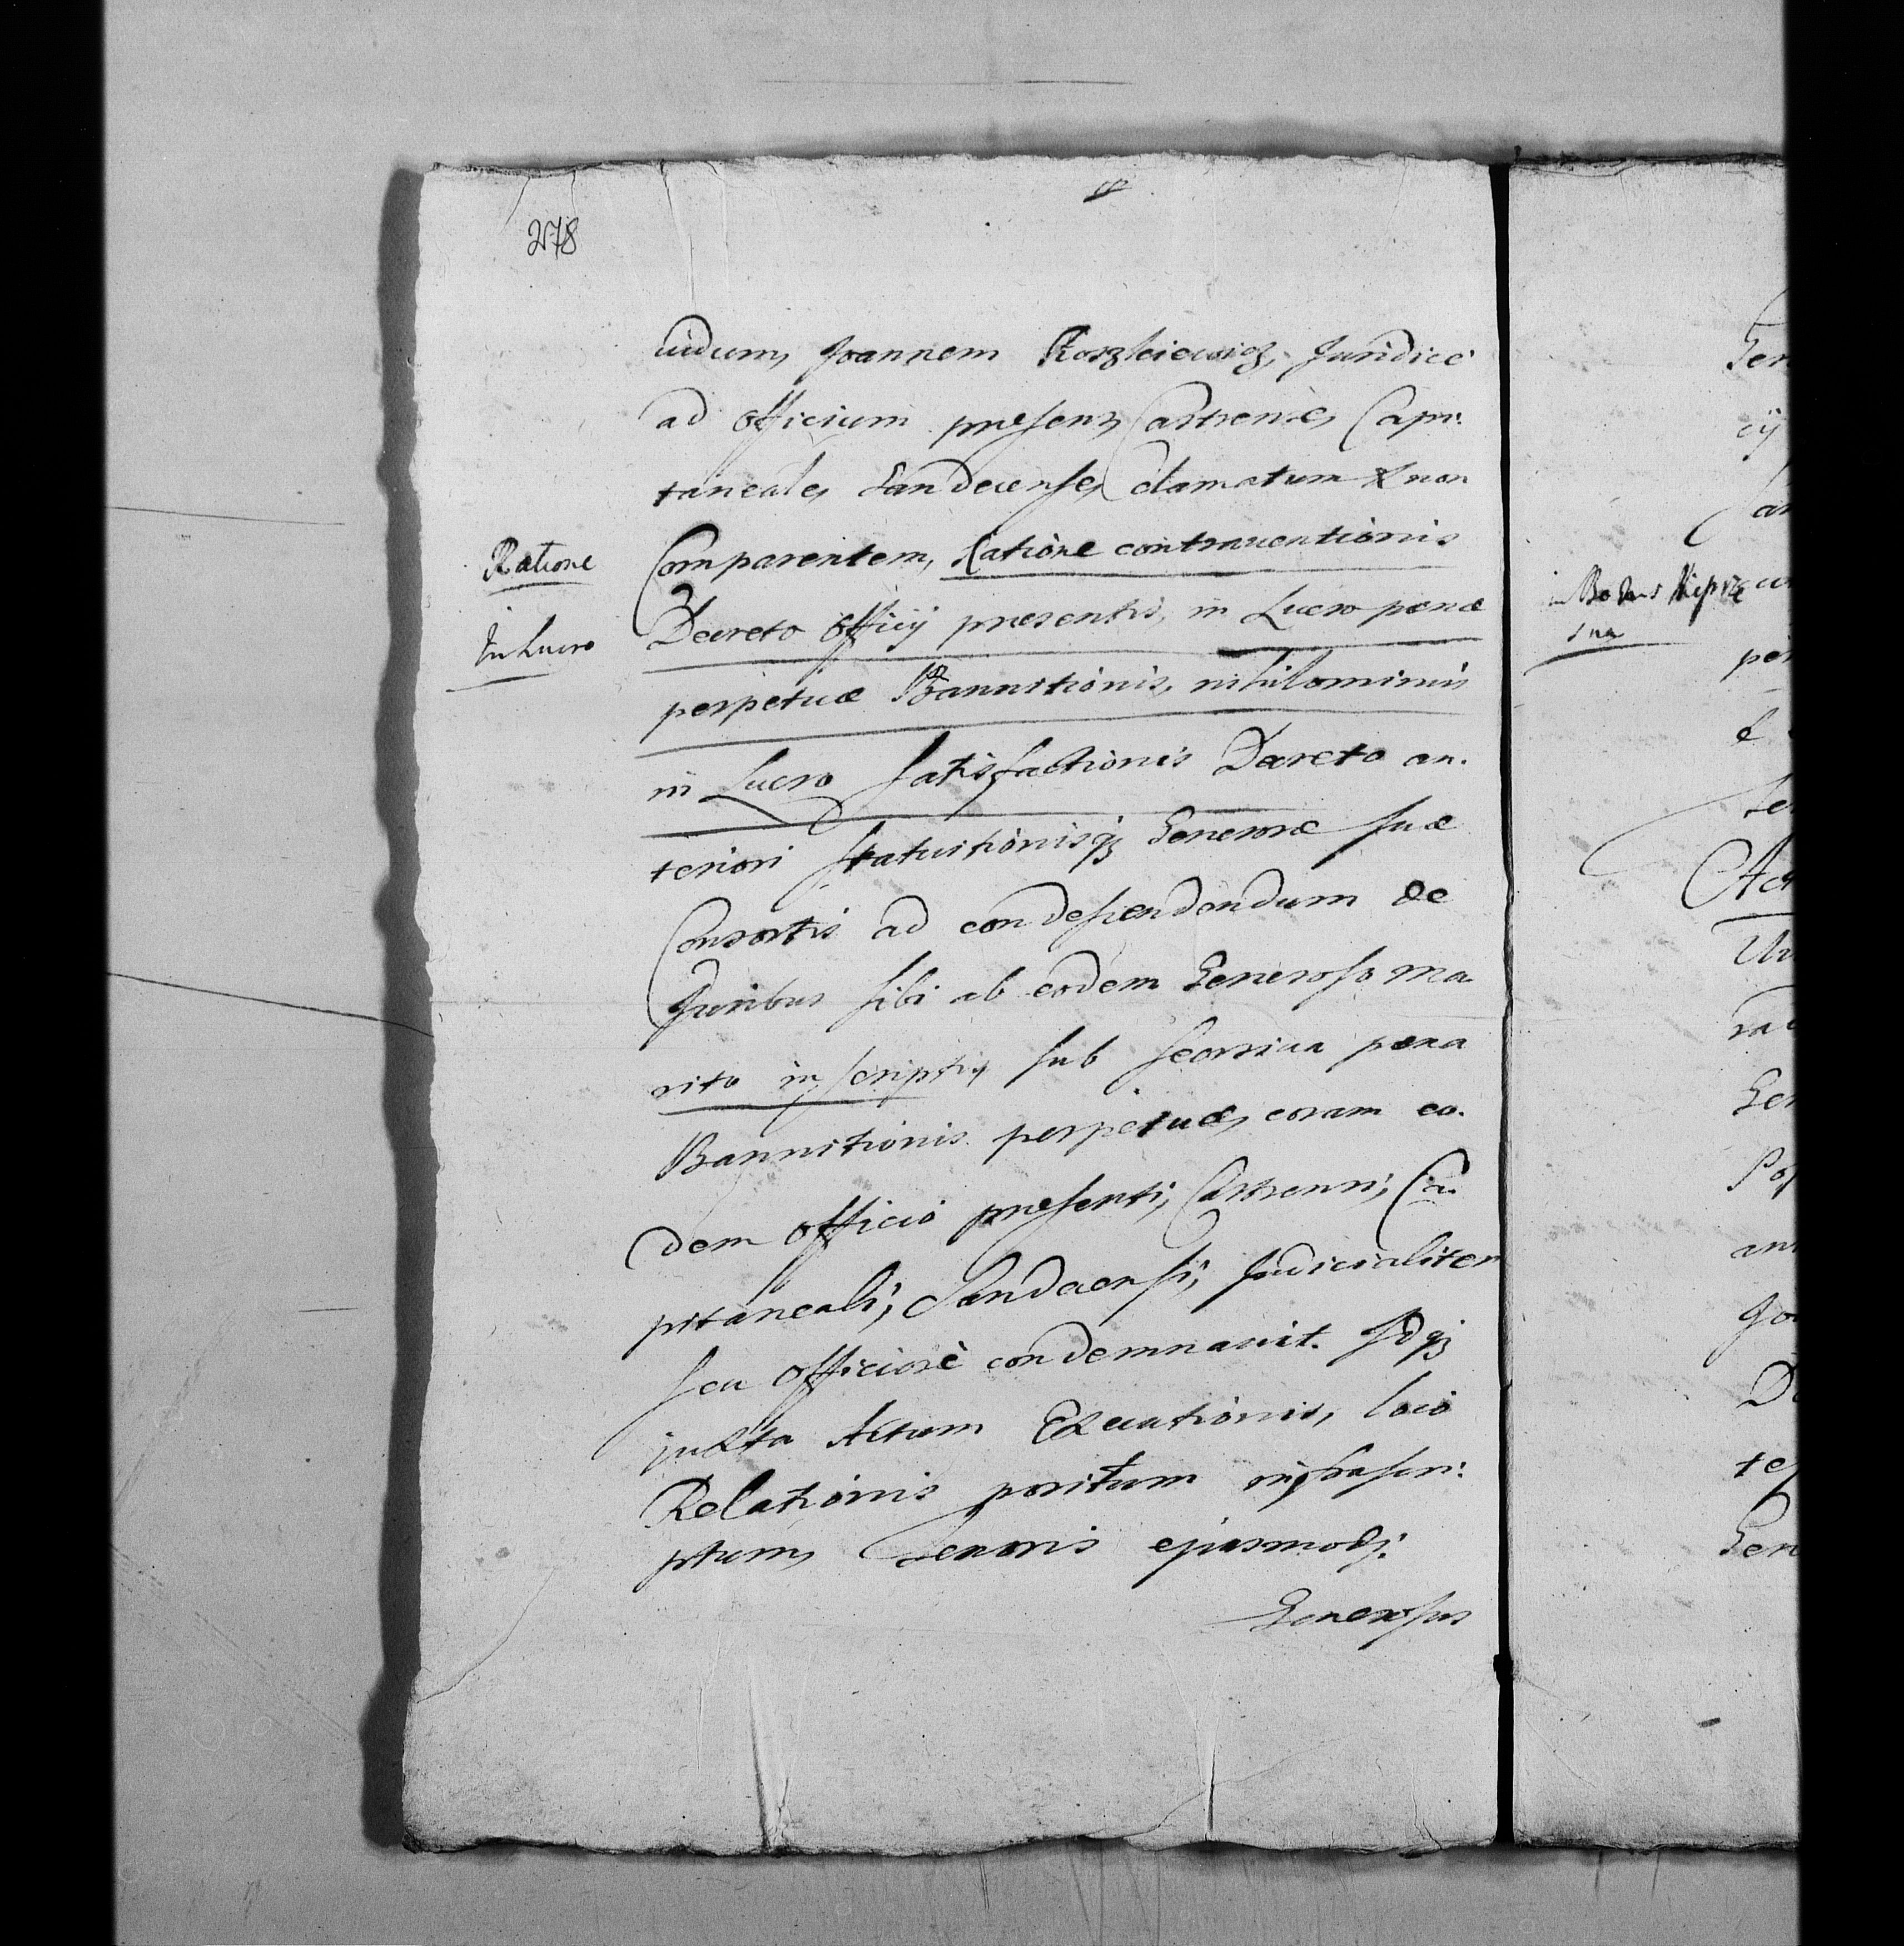 278
uidum, Joannem Roszkiewicz, Juridicè
ad Officium præsens, Castrense, Capi:
taneale, Sandecense, clamatum & non
Comparentem, Ratione contrauentionis
Decreto Officij præsentis, in Lucro pœnæ
perpetuæ Bannitionis, nihilominus
in Lucro satisfactionis Decreto an.
teriori statuitionisq; Generosæ suæ
Consortis ad condescendendum de
Juribus sibi ab eodem Generoso ma
rito inscriptis, sub seorsiua pœna
Bannitionis perpetuæ, coram eo.
dem Officio præsenti, Castrensi, Ca.
pitaneali, Sandecensi, Judicialiter
seu Officiosè condemnauit. Idq;
juxta Actum Executionis, loco
Relationis positum infrascri:
ptum, Tenoris ejusmodi.
Generosus
Ratione
In Lucro
in Bonis
sua
Gen
cij
per
Act
Gen
Gen